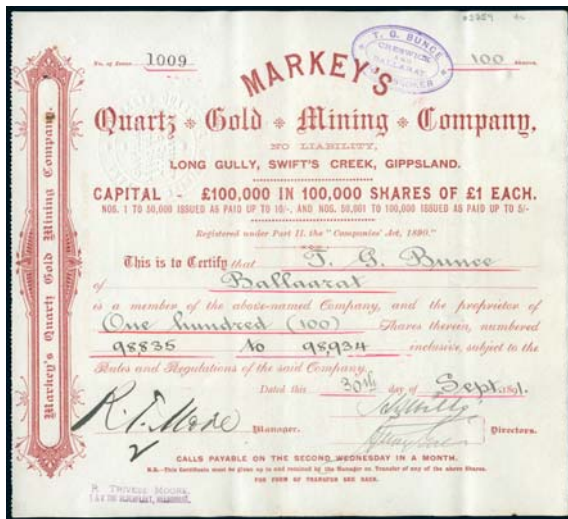 No. of Scrip 1009
100 Shares.
T. G. BUNCE
CRESWICK
AND
BALLARAT
MARKEY'S
Quartz Gold Mining Company,
NO LIABILITY,
LONG GULLY, SWIFT'S CREEK, GIPPSLAND.
CAPITAL - £100,000 IN 100,000 SHARES OF £1 EACH.
NOS. 1 TO 50,000 ISSUED AS PAID UP TO 10/-, AND NOS. 50,001 TO 100,000 ISSUED AS PAID UP TO 5/-
Registered under Part II. the "Companies' Act, 1890."
This is to Certify that T. G. Bunce
of Ballaarat
is a member of the above-named Company, and the proprietor of
One hundred (100) Shares therein, numbered
98,835 to 98,934 inclusive, subject to the
Rules and Regulations of the said Company.
Dated this 30th day of Sept. 1891.
Manager.
Directors.
CALLS PAYABLE ON THE SECOND WEDNESDAY IN A MONTH.
N.B.—This Certificate must be given up to and retained by the Manager on Transfer of any of the above Shares.
FOR FORM OF TRANSFER SEE BACK.
R. TREVESE MOORE,
Markey's Quartz Gold Mining Company.